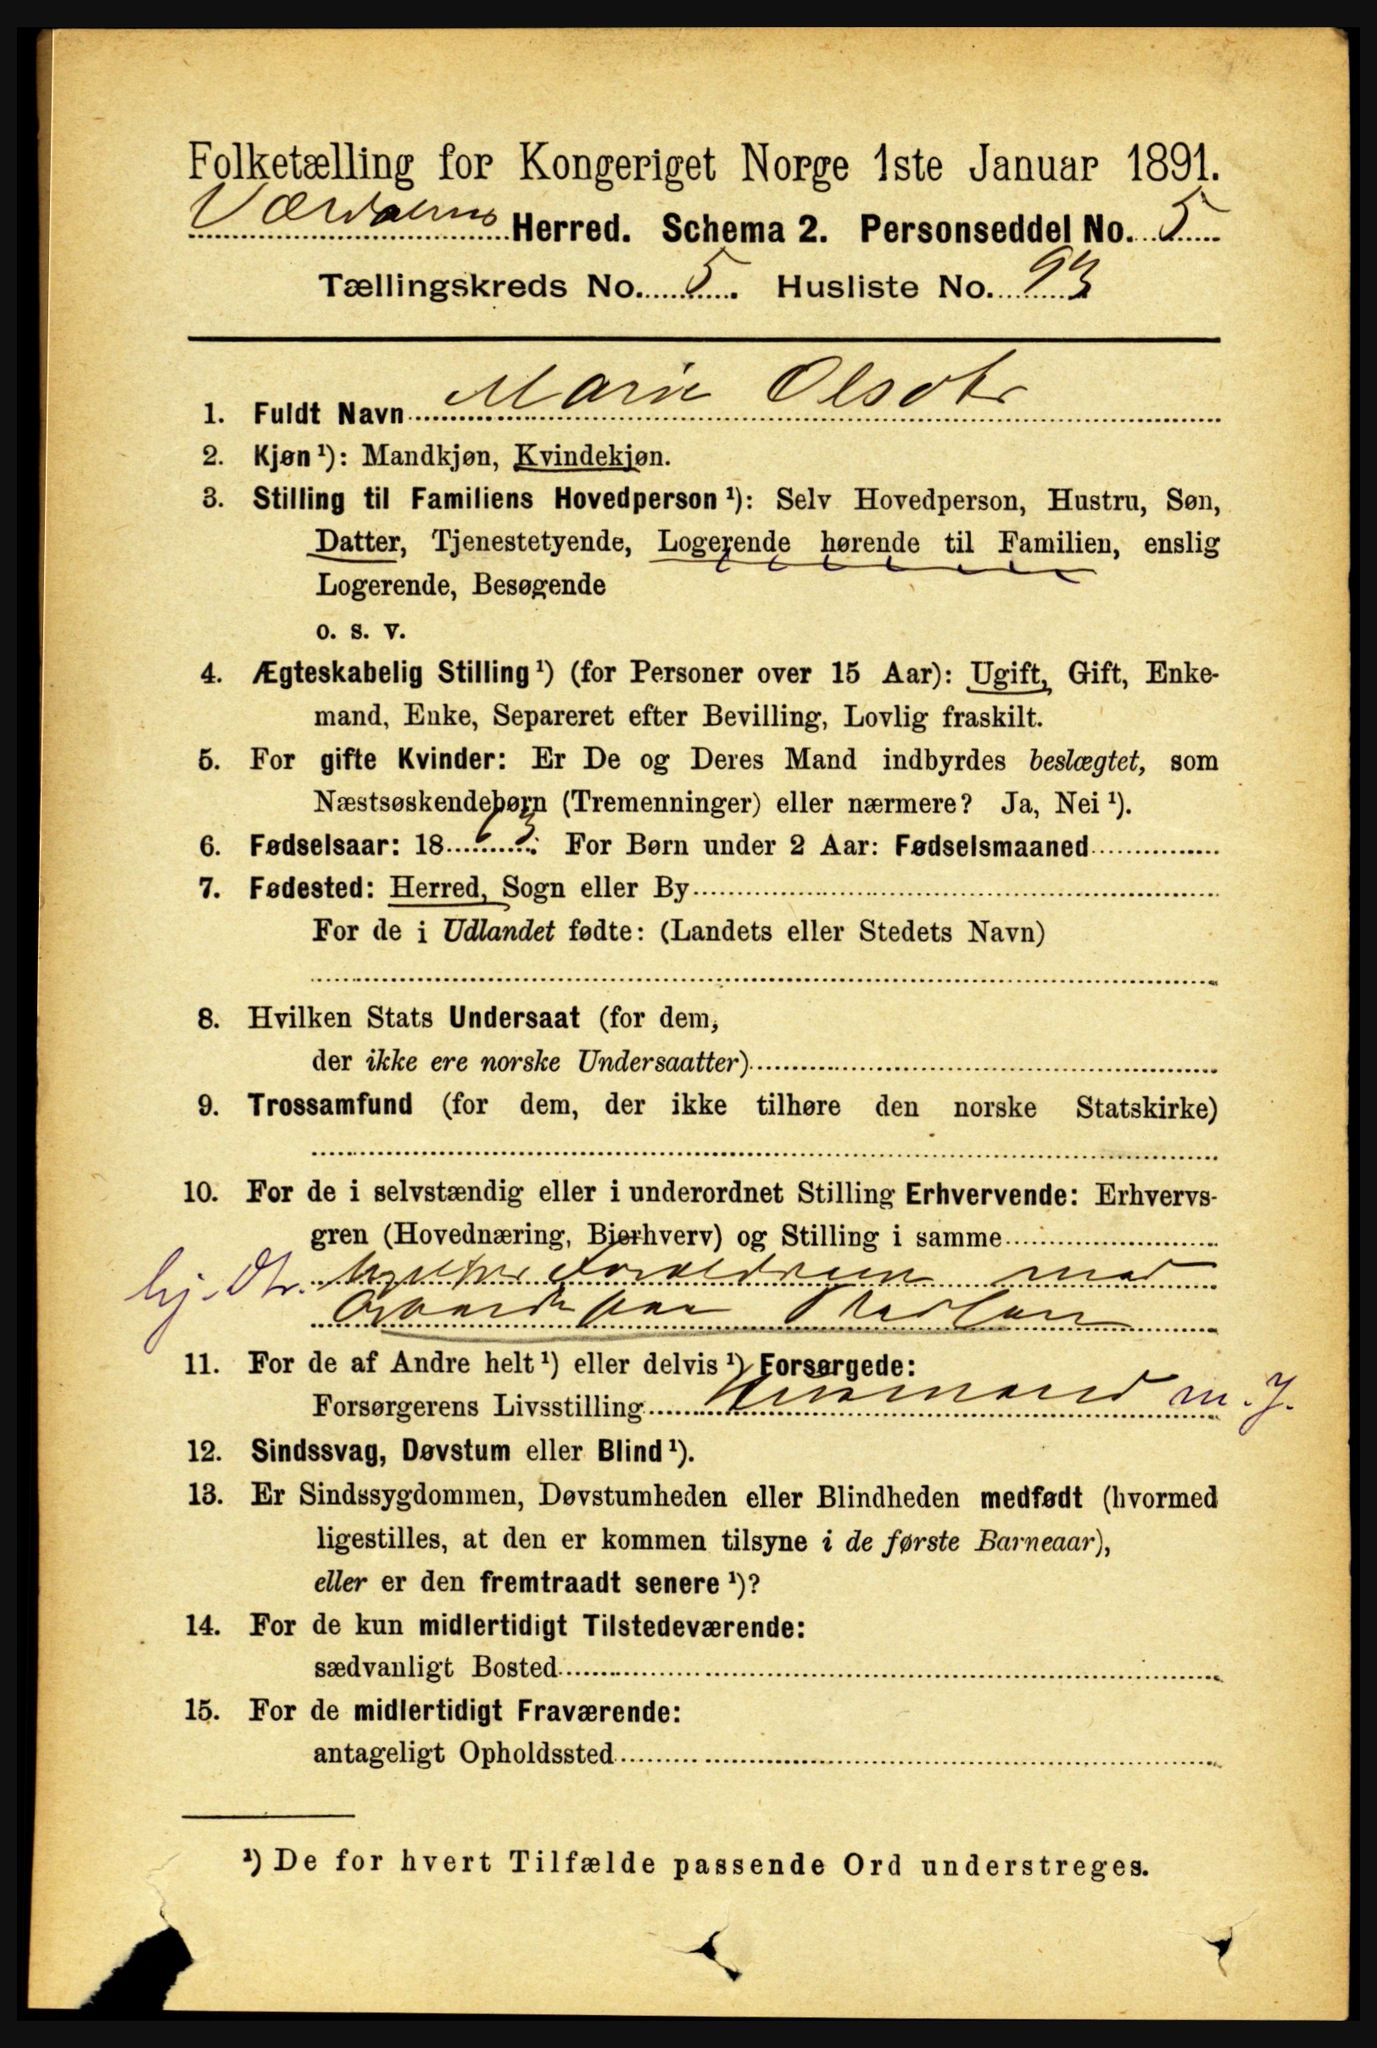 Folketælling for Kongeriget Norge 1ste Januar 1891.
Værdalens Herred. Schema 2. Personseddel No. 5
Tællingskreds No. 5. Husliste No. 93
1. Fuldt Navn Marie Olsdtr
2. Kjøn ¹): Mandkjøn, Kvindekjøn.
3. Stilling til Familiens Hovedperson ¹): Selv Hovedperson, Hustru, Søn,
Datter, Tjenestetyende, Logerende hørende til Familien, enslig
Logerende, Besøgende
o. s. v.
4. Ægteskabelig Stilling ¹) (for Personer over 15 Aar): Ugift, Gift, Enke-
mand, Enke, Separeret efter Bevilling, Lovlig fraskilt.
5. For gifte Kvinder: Er De og Deres Mand indbyrdes beslægtet, som
Næstsøskendebørn (Tremenninger) eller nærmere? Ja, Nei ¹).
6. Fødselsaar: 1873. For Børn under 2 Aar: Fødselsmaaned
7. Fødested: Herred, Sogn eller By
For de i Udlandet fødte: (Landets eller Stedets Navn)
8. Hvilken Stats Undersaat (for dem,
der ikke ere norske Undersaatter)
9. Trossamfund (for dem, der ikke tilhøre den norske Statskirke)
10. For de i selvstændig eller i underordnet Stilling Erhvervende: Erhvervs-
gren (Hovednæring, Bierhverv) og Stilling i samme
hj. Dtr. hjelper Foreldrene med
Arbeide paa
11. For de af Andre helt ¹) eller delvis ¹) Forsørgede:
Forsørgerens Livsstilling Husmand m. J.
12. Sindssvag, Døvstum eller Blind ¹).
13. Er Sindssygdommen, Døvstumheden eller Blindheden medfødt (hvormed
ligestilles, at den er kommen tilsyne i de første Barneaar),
eller er den fremtraadt senere ¹)?
14. For de kun midlertidigt Tilstedeværende:
sædvanligt Bosted
15. For de midlertidigt Fraværende:
antageligt Opholdssted
¹) De for hvert Tilfælde passende Ord understreges.